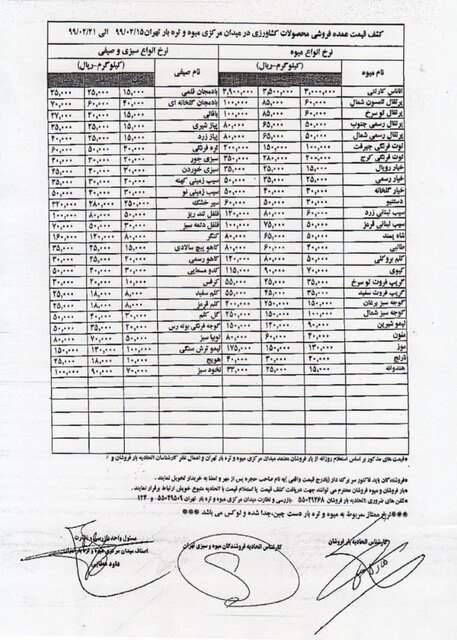 کشف قیمت عمده فروشی محصولات کشاورزی در میدان مرکزی میوه و تره بار تهران ۹۹/۰۲/۱۵ الی ۹۹/۰۲/۲۱
نرخ انواع میوه نرخ انواع سبزی و صیفی
نام میوه (کیلوگرم-ریال) نام صیفی (کیلوگرم-ریال)
آناناس کارتنی ۳,۰۰۰,۰۰۰ ۳,۵۰۰,۰۰۰ ۳,۹۰۰,۰۰۰ بادمجان قلمی ۱۵,۰۰۰ ۲۵,۰۰۰ ۳۵,۰۰۰
پرتقال تامسون شمال ۶۰,۰۰۰ ۸۵,۰۰۰ ۱۰۰,۰۰۰ بادمجان گلخانه ای ۴۰,۰۰۰ ۶۰,۰۰۰ ۷۰,۰۰۰
پرتقال تو سرخ ۶۰,۰۰۰ ۸۵,۰۰۰ ۱۰۰,۰۰۰ باقالی ۲۰,۰۰۰
پرتقال رسمی جنوب ۵۰,۰۰۰ ۶۵,۰۰۰ ۸۰,۰۰۰ پیاز شیری ۱۵,۰۰۰ ۲۵,۰۰۰ ۳۵,۰۰۰
پرتقال رسمی شمال ۵۰,۰۰۰ ۶۵,۰۰۰ ۸۰,۰۰۰ پیاز زرد
توت فرنگی جیرفت ۱۰۰,۰۰۰ ۱۵۰,۰۰۰ ۲۰۰,۰۰۰ تره فرنگی ۴۰,۰۰۰ ۵۰,۰۰۰ ۶۰,۰۰۰
توت فرنگی کرج ۲۸۰,۰۰۰ ۳۵۰,۰۰۰ سبزی جور ۲۰,۰۰۰ ۳۰,۰۰۰ ۴۰,۰۰۰
خیار رویال ۱۵,۰۰۰ ۲۵,۰۰۰ ۳۵,۰۰۰ سبزی خوردن ۲۰,۰۰۰ ۳۰,۰۰۰ ۴۵,۰۰۰
خیار رسمی ۲۵,۰۰۰ ۳۵,۰۰۰ ۵۰,۰۰۰ سیب زمینی کهنه
خیار گلخانه ۳۰,۰۰۰ ۴۰,۰۰۰ ۵۰,۰۰۰ سیب زمینی نو
دستنبو ۳۰,۰۰۰ ۴۰,۰۰۰ ۶۰,۰۰۰ سیر خشکه ۲۵۰,۰۰۰ ۲۸۰,۰۰۰ ۳۲۰,۰۰۰
سیب لبنانی زرد ۶۰,۰۰۰ ۸۰,۰۰۰ ۱۲۰,۰۰۰ فلفل تند ریز ۵۰,۰۰۰ ۸۰,۰۰۰ ۱۰۰,۰۰۰
سیب لبنانی قرمز ۵۰,۰۰۰ ۷۵,۰۰۰ ۱۰۰,۰۰۰ فلفل دلمه سبز ۳۰,۰۰۰ ۵۰,۰۰۰ ۸۰,۰۰۰
شاه پسند ۵۰,۰۰۰ ۶۵,۰۰۰ ۸۰,۰۰۰ کنگر ۸۰,۰۰۰ ۱۲۰,۰۰۰ ۱۶۰,۰۰۰
طالبی ۴۰,۰۰۰ ۶۰,۰۰۰ ۸۰,۰۰۰ کاهو پیچ سالادی ۱۵,۰۰۰ ۲۵,۰۰۰ ۳۵,۰۰۰
کلم بروکلی ۵۰,۰۰۰ ۸۰,۰۰۰ ۱۴۰,۰۰۰ کاهو رسمی
کیوی ۷۰,۰۰۰ ۹۰,۰۰۰ ۱۱۵,۰۰۰ کدو مسمایی ۳۰,۰۰۰ ۴۰,۰۰۰ ۵۰,۰۰۰
گریپ فروت تو سرخ ۳۵,۰۰۰ ۴۵,۰۰۰ ۵۵,۰۰۰ کرفس ۱۰,۰۰۰ ۲۰,۰۰۰ ۳۰,۰۰۰
گریپ فروت سفید ۳۵,۰۰۰ ۴۵,۰۰۰ ۵۵,۰۰۰ کلم سفید ۸,۰۰۰ ۱۸,۰۰۰ ۲۵,۰۰۰
گوجه سبز برغان ۱۵۰,۰۰۰ ۲۰۰,۰۰۰ ۲۵۰,۰۰۰ کلم قرمز ۸,۰۰۰ ۱۸,۰۰۰ ۲۵,۰۰۰
گوجه سبز شمال ۱۰۰,۰۰۰ ۱۵۰,۰۰۰ ۲۰۰,۰۰۰ گل کلم ۳۰,۰۰۰ ۴۰,۰۰۰ ۵۰,۰۰۰
لیمو شیرین ۹۰,۰۰۰ ۱۲۰,۰۰۰ ۱۵۰,۰۰۰ گوجه فرنگی بوته رس ۲۰,۰۰۰ ۳۵,۰۰۰ ۵۰,۰۰۰
ملون ۴۰,۰۰۰ ۶۰,۰۰۰ ۸۰,۰۰۰ لوبیا سبز ۵۰,۰۰۰ ۷۰,۰۰۰ ۸۰,۰۰۰
موز ۱۳۰,۰۰۰ ۱۵۰,۰۰۰ ۱۷۵,۰۰۰ لیمو ترش سنگی ۱۰۰,۰۰۰ ۱۳۰,۰۰۰ ۱۵۰,۰۰۰
نارنج ۲۰,۰۰۰ ۳۰,۰۰۰ ۴۰,۰۰۰ هویج ۱۰,۰۰۰ ۱۸,۰۰۰ ۲۵,۰۰۰
هندوانه ۱۵,۰۰۰ ۲۵,۰۰۰ ۳۳,۰۰۰ نخود سبز ۷۰,۰۰۰ ۹۰,۰۰۰ ۱۰۰,۰۰۰
*قیمت های مذکور بر اساس استعلام روزانه از بار فروشان معتمد میدان مرکزی میوه و تره بار تهران و اعمال نظر کارشناسان اتحادیه بار فروشان و
*فروشندگان باید فاکتور سر برگ دار (بادرج قیمت واقعی) به نام صاحب حجره پس از مهر و امضا به خریدار تحویل نمایند.
*بار فروشان و میوه فروشان محترم می توانند جهت دریافت کشف قیمت یا استعلام قیمت با اتحادیه متبوع خویش ارتباط برقرار نمایند.
*تلفن های ضروری اتحادیه بار فروشان ۵۵۰۲۱۲۶۸ بازرسی و نظارت میدان مرکزی میوه و تره بار تهران ۵۵۰۲۹۵۰۹ و ۱۲۴
***نرخ ممتاز مربوط به میوه و تره بار دست چین، جدا شده و لوکس می باشد ***
کارشناس اتحادیه بار فروشان
کارشناس اتحادیه فروشندگان میوه و سبزی تهران
مسئول واحد بازرسی و نظارت
اصناف میدان مرکزی میوه و تره بار
داود